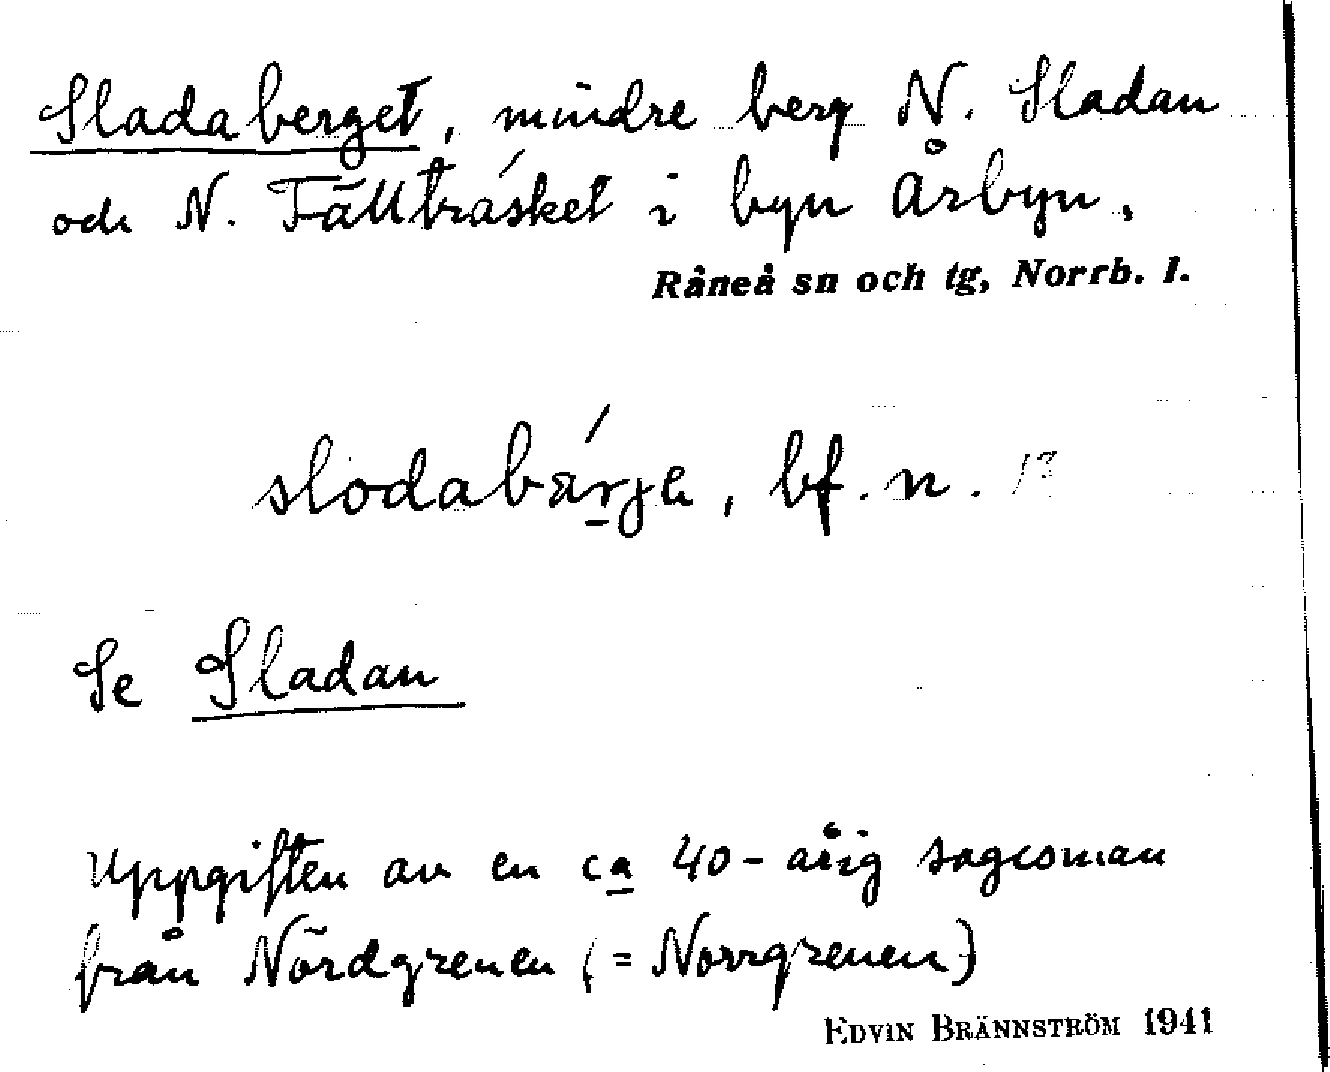 Sladaberget, mindre berg N. Sladan
och N. Tällträsket i byn Årbyn.
Råneå sn och tg, Norrb. l.
slodabärje, bf. n.
Se Sladan
Uppgiften av en ca 40-årig sagesman
från Nördgrenen (= Norrgrenen)
EDVIN BRÄNNSTRÖM 1941